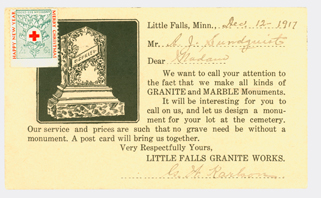 HAPPY NEW YEAR
MERRY CHRISTMAS
Little Falls, Minn., Dec. 12 - 1917
Mr. A. J. Sundquist
Dear Madam
We want to call your attention to
the fact that we make all kinds of
GRANITE and MARBLE Monuments.
It will be interesting for you to
call on us, and let us design a monu-
ment for your lot at the cemetery.
Our service and prices are such that no grave need be without a
monument. A post card will bring us together.
Very Respectfully Yours,
LITTLE FALLS GRANITE WORKS.